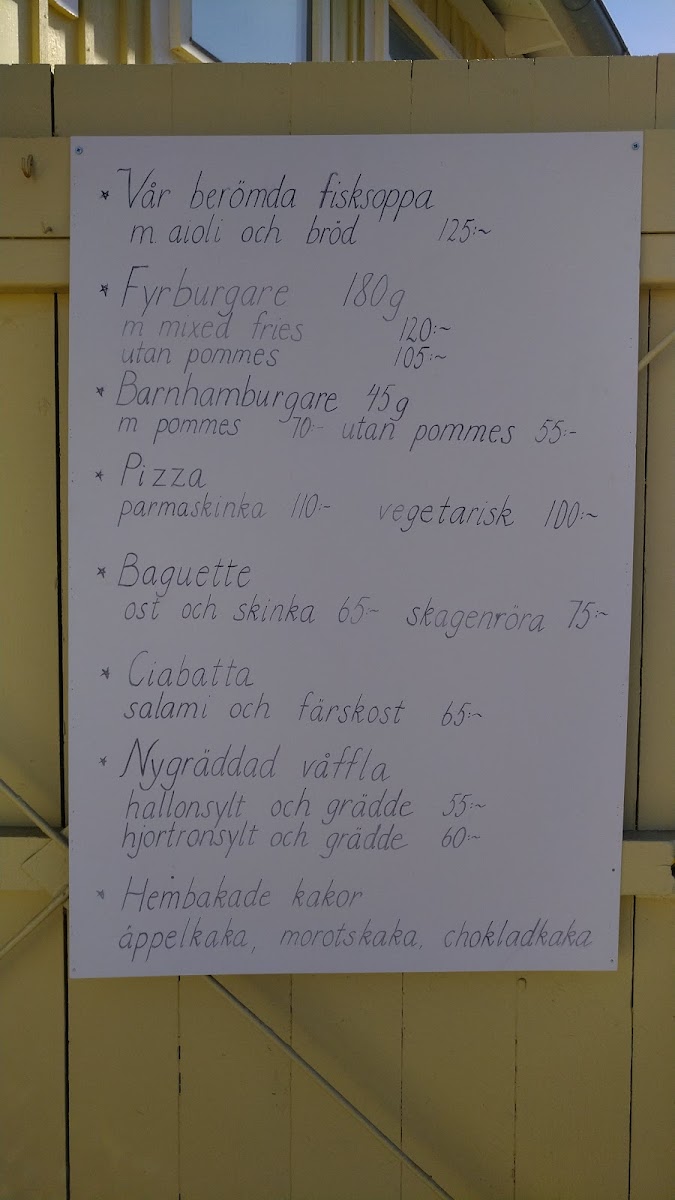 * Vår berömda fisksoppa
m. aioli och bröd 125:~
* Fyrburgare 180g
m mixed fries 120:~
utan pommes 105:~
* Barnhamburgare 45g
m pommes 70:- utan pommes 55:-
* Pizza
parmaskinka 110:- vegetarisk 100:~
* Baguette
ost och skinka 65:~ skagenröra 75:~
* Ciabatta
salami och färskost 65:~
* Nygräddad våffla
hallonsylt och grädde 55:~
hjortronsylt och grädde 60:~
* Hembakade kakor
äppelkaka, morotskaka, chokladkaka